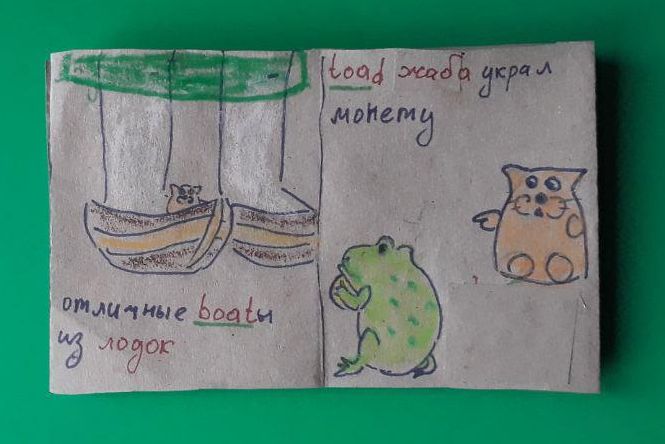 отличные boatы
из лодок
toad жаба украл
монету